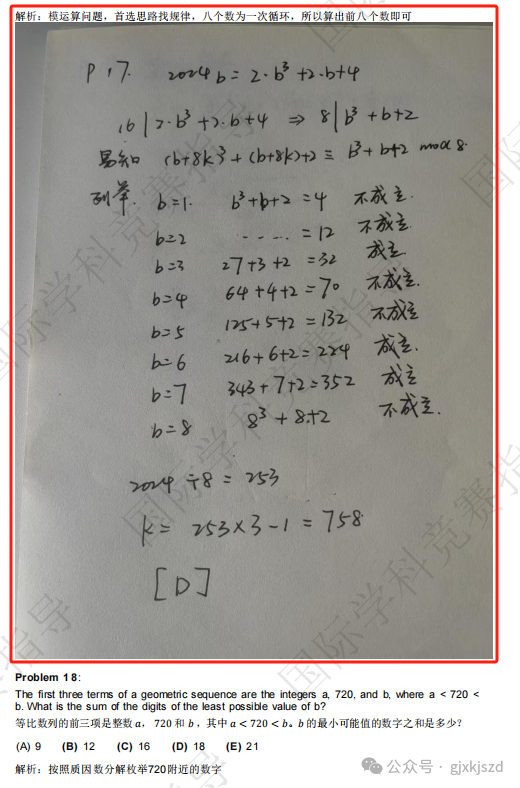 解析：模运算问题，首选思路找规律，八个数为一次循环，所以算出前八个数即可
P 17. 2024 b = 2·b³+2·b+4
16 | 2·b³+2·b+4 ⇒ 8 | b³+b+2
易知 (b+8k)³+(b+8k)+2 ≡ b³+b+2 mod 8.
列举. b=1. b³+b+2 =4 不成立.
b=2 ..... =12 不成立.
b=3 27+3+2 =32 成立.
b=4 64+4+2 =70 不成立.
b=5 125+5+2 =132 不成立
b=6 216+6+2 =224 成立.
b=7 343+7+2 =352 成立
b=8 8³+8+2 不成立.
2024 ÷8 = 253
k= 253×3-1 = 758
[D]
Problem 18:
The first three terms of a geometric sequence are the integers a, 720, and b, where a < 720 <
b. What is the sum of the digits of the least possible value of b?
等比数列的前三项是整数 a， 720 和 b ，其中 a < 720 < b。b 的最小可能值的数字之和是多少？
(A) 9 (B) 12 (C) 16 (D) 18 (E) 21
解析：按照质因数分解枚举720附近的数字
公众号 · gjxkjszd
国际学科竞赛指导